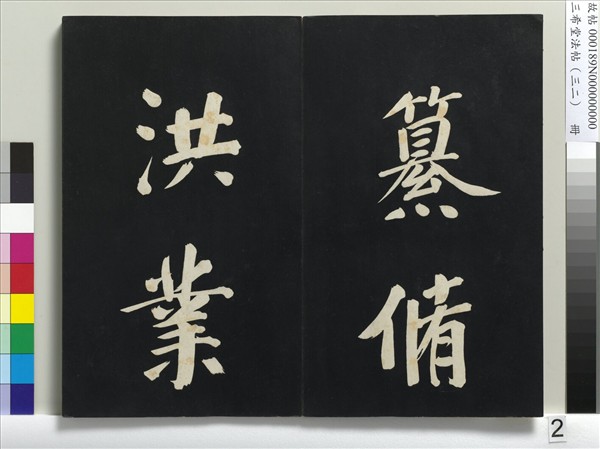 纂脩
洪業
故帖 000189N000000000
三希堂法帖（三二） 冊
2